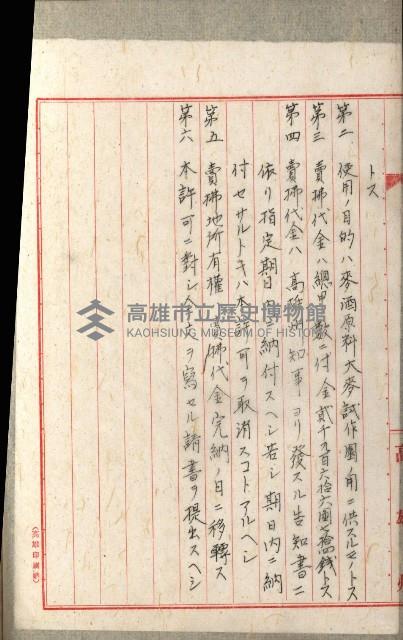 トス
第二 使用ノ目的ハ麥酒原料大麥試作圃ノ用ニ供スルモノトス
第三 賣拂代金ハ總甲數ニ付金貳千百六拾六圓錢トス
第四 賣拂代金ハ高雄州知事ヨリ發スル告知書ニ
依リ指定期日内ニ納付スヘシ若シ期日内ニ納
付セサルトキハ本許可ヲ取消スコトアルヘシ
第五 賣拂地所有權ハ賣拂代金完納ノ日ニ移轉ス
第六 本許可ニ對シヲ寫セル請書ヲ提出スヘシ
高雄州
高雄市立歷史博物館
KAOHSIUNG MUSEUM OF HISTORY